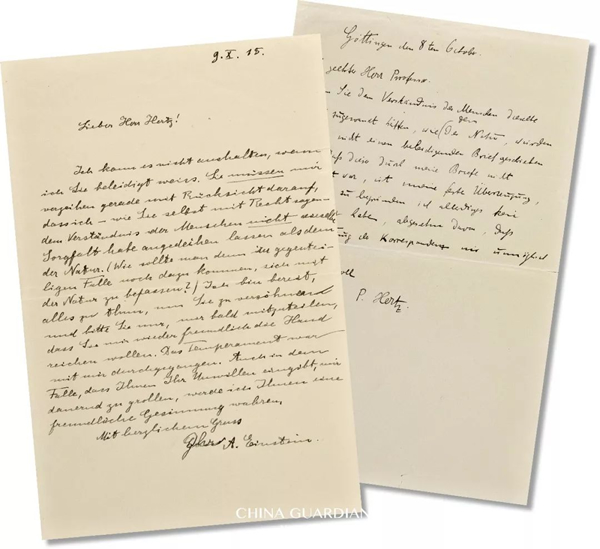 9. X. 15.
Lieber Herr Hertz!
Ich kann es nicht aushalten, wenn
ich Sie beleidigt weiss. Sie müssen mir
verzeihen gerade mit Rücksicht darauf,
dass ich – wie Sie selbst mit Recht sagen –
dem Verständnis der Menschen nicht dieselbe
Sorgfalt habe angedeihen lassen als dem
der Natur. (Wie sollte man denn im gegentei-
ligen Falle noch dazu kommen, sich mit
der Natur zu befassen?) Ich bin bereit,
alles zu thun, um Sie zu versöhnen
und bitte Sie nur, mir bald mitzuteilen,
dass Sie mir wieder freundlich die Hand
reichen wollen. Das Temperament war
mit mir durchgegangen. Auch in dem
Falle, dass Ihnen Ihr Unwillen eingibt, mir
dauernd zu grollen, werde ich Ihnen eine
freundliche Gesinnung wahren.
Mit herzlichem Gruss
A. Einstein.
Göttingen den 8ten October.
geehrter Herr Professor.
Sie dem Verständnis der Menschen dieselbe
zugewandt hätten, wie der Natur, würden
nicht einen beleidigenden Brief geschrieben
meine Briefe nicht
ist meine feste Überzeugung,
zu begründen ich allerdings kein
haben, abgesehen davon, dass
der Korrespondenz mir unmöglich
P. Hertz.
CHINA GUARDIAN